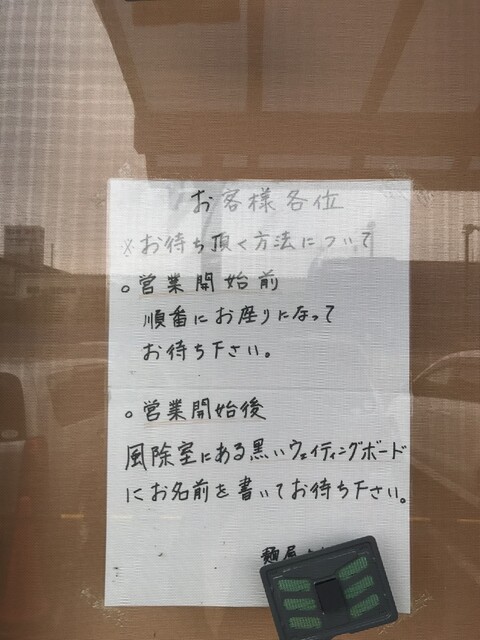 お客様各位
※お待ち頂く方法について
○営業開始前
順番にお座りになって
お待ち下さい。
○営業開始後
風除室にある黒いウェイティングボード
にお名前を書いてお待ち下さい。
麺屋